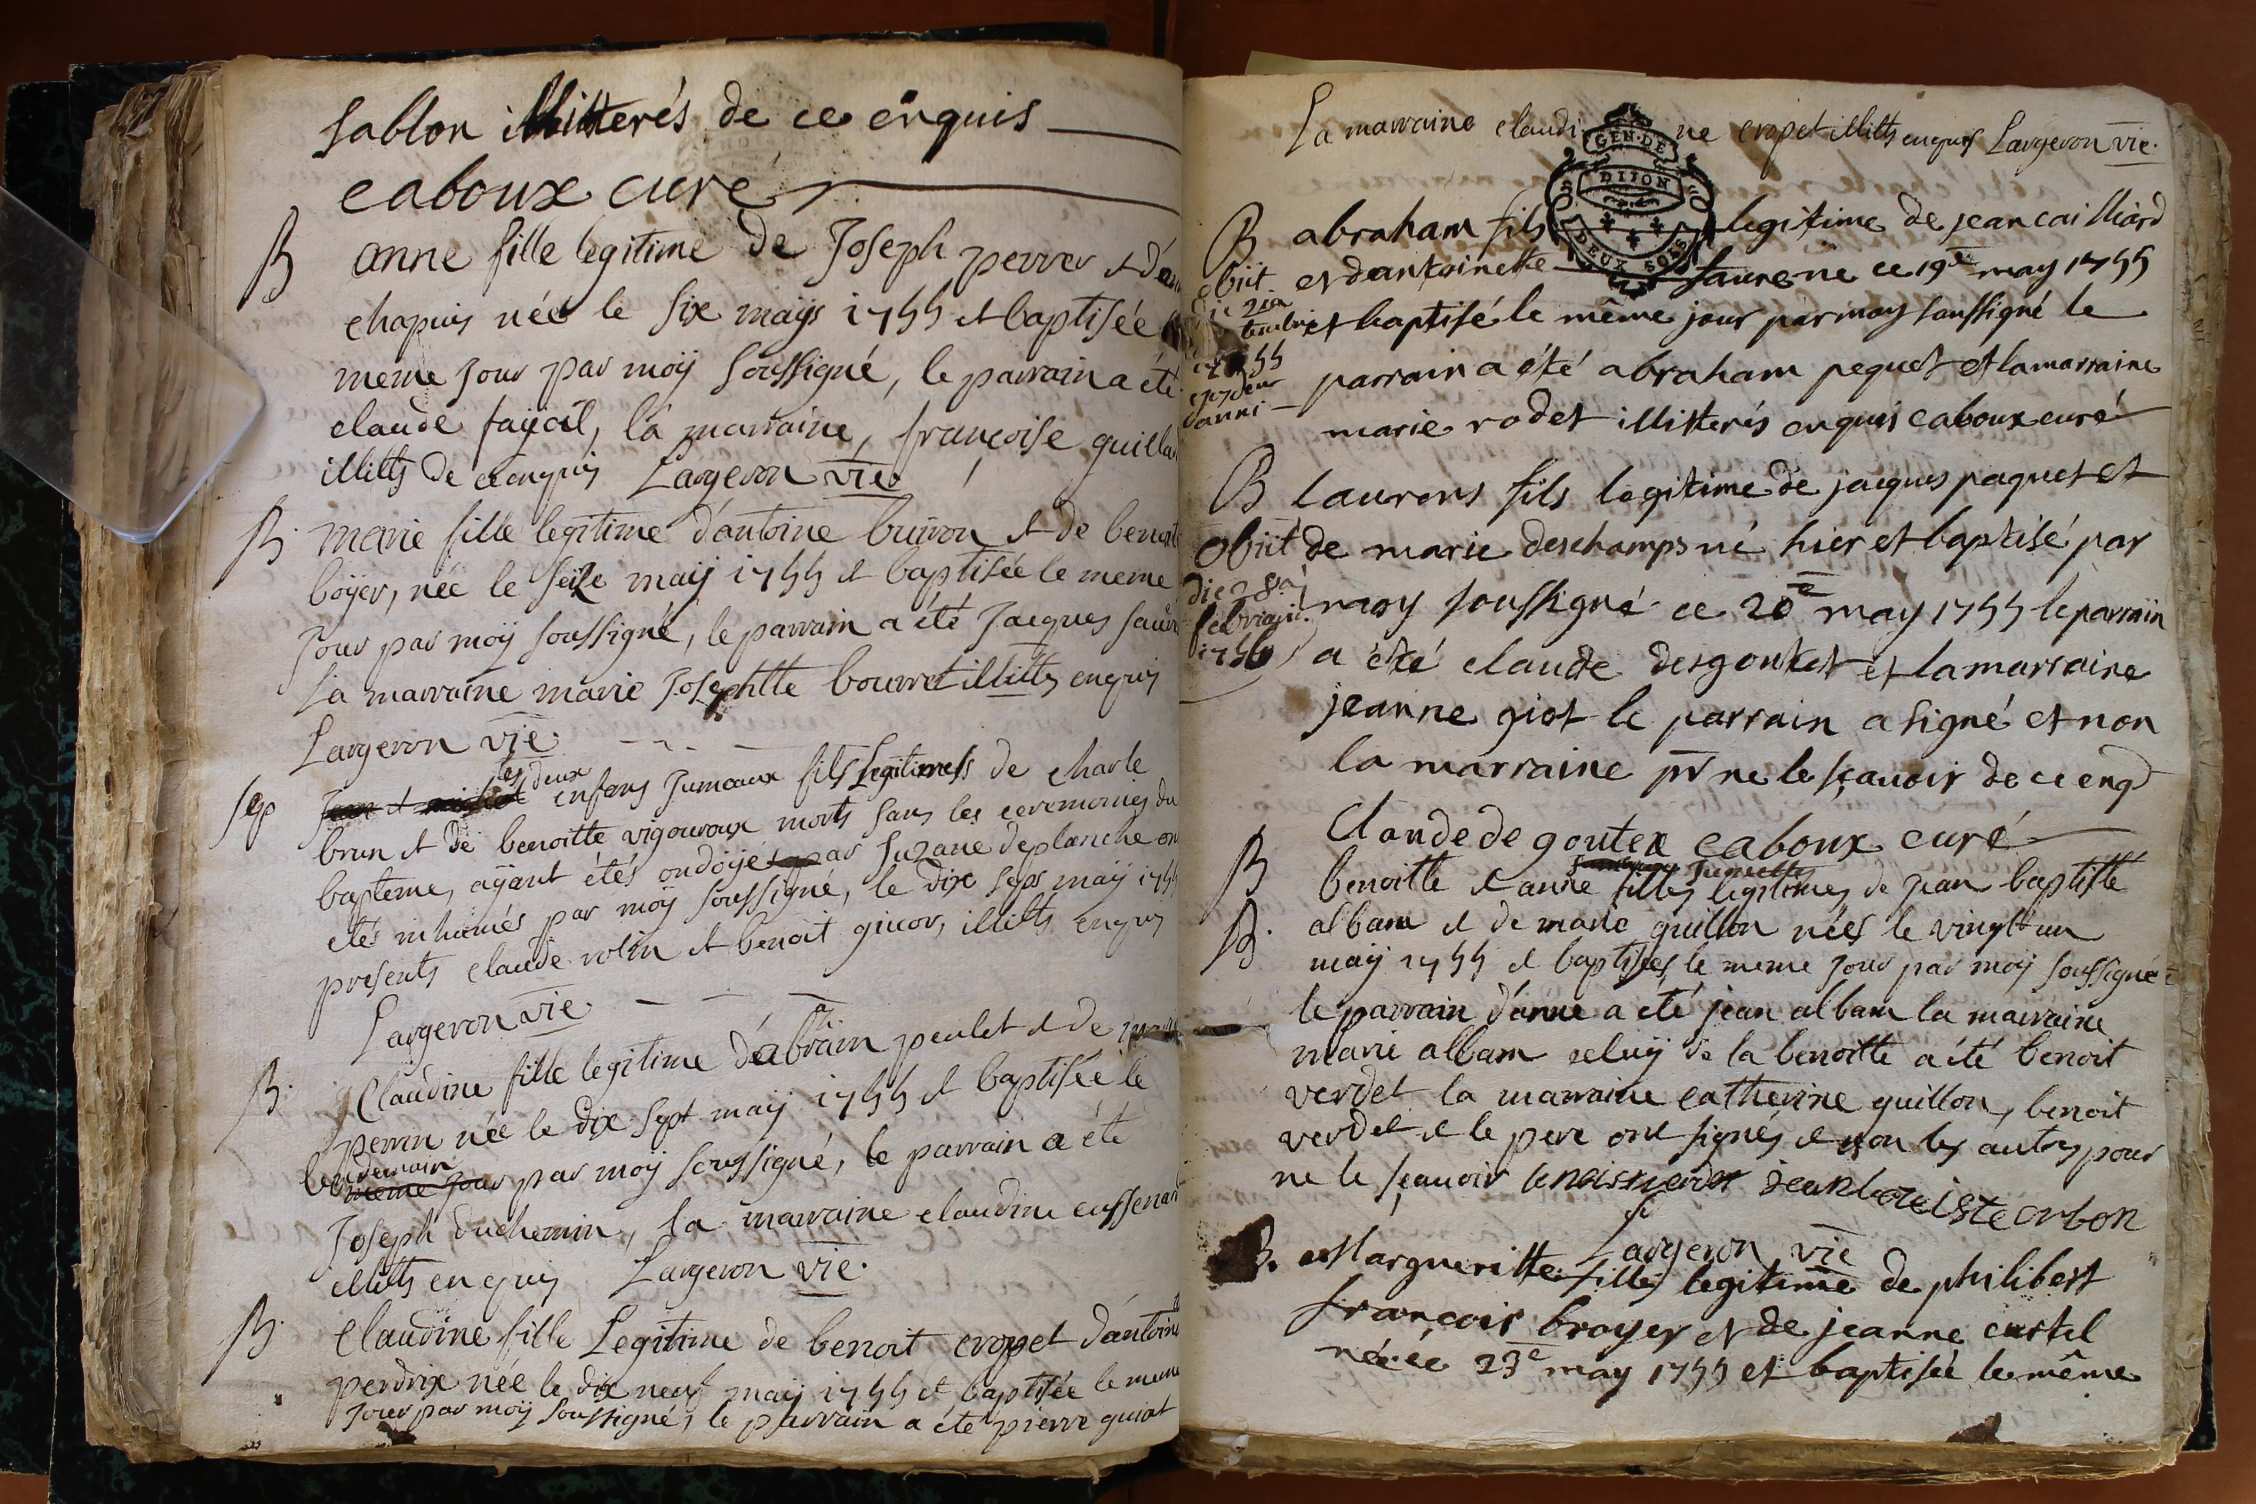 Sablon illitterés de ce enquis
caboux curé
B anne fille legitime de Joseph perret et d'
chapuis née le six maÿs 1755 et baptisée
meme Jour par moÿ Soussigné, le parrain a été
claude la marraine, françoise
illitts de ce enquis Largeron vie
B. marie fille legitime d'antoine buiron et de
boÿer, née le seize maÿ 1755 et baptisée le meme
Jour par moÿ soussigné, le parrain a été Jacques
La marraine marie Josephtte bourret illitts enquis
Largeron vie.
les deux
Sep Jean et enfans Jumeaux fils legitimes de charle
brun et de benoitte vigouroux morts sans les ceremonies du
bapteme, aÿant étés ondoÿés par Suzane deplanche ont
étés inhumés par moÿ soussigné, le dix sept maÿ 1755
presents claude rolin et benoit gicor, illitts enquis
Largeron vie.
B. Claudine fille legitime d'abraham peulet et de
perrin née le dix sept maÿ 1755 et baptisée le
lendemain
meme Jour par moÿ soussigné, le parrain a été
Joseph duchemin, la marraine claudine
illitts enquis Largeron vie.
B. Claudine fille Legitime de benoit cropet d'antoine
perdrix née le dix neuf maÿ 1755 et baptisée le meme
Jour par moÿ soussigné, le parrain a été pierre guiat
La marraine claudine cropet illitts enquis Largeron vie.
GEN. DE
DIJON
DEUX SOLS
B abraham fils legitime de jean cailliard
obiit et d'antoinette faure né ce 19e may 1755
die
et baptisé le même jour par moy soussigné le
1755
parrain a été abraham pequet et la marraine
ejusdem
anni
marie rodet illitterés enquis caboux curé
B laurens fils legitime de jacques paquet et
obiit de marie deschamps né hier et baptisé par
die 28a
moy soussigné ce 20e may 1755 le parrain
februarii
1756 a été claude desgoutet et la marraine
jeanne giot le parrain a signé et non
la marraine pr ne le sçavoir de ce enq
Claude de goutex caboux curé
B benoitte et anne filles legitimes de jean baptiste
B. alban et de marie guillon nées le vingt un
maÿ 1755 et baptisées le meme jour par moÿ soussigné
le parrain d'anne a été jean alban la marraine
marie alban celuÿ de la benoitte a été benoit
verdet la marraine catherine guillon, benoit
verdet et le pere ont signés et non les autres pour
ne le sçavoir benoist verdet jean batiste orbon
Largeron vie
B. Margueritte fille legitime de philibert
françois broyer et de jeanne
née ce 23e may 1755 et baptisée le même